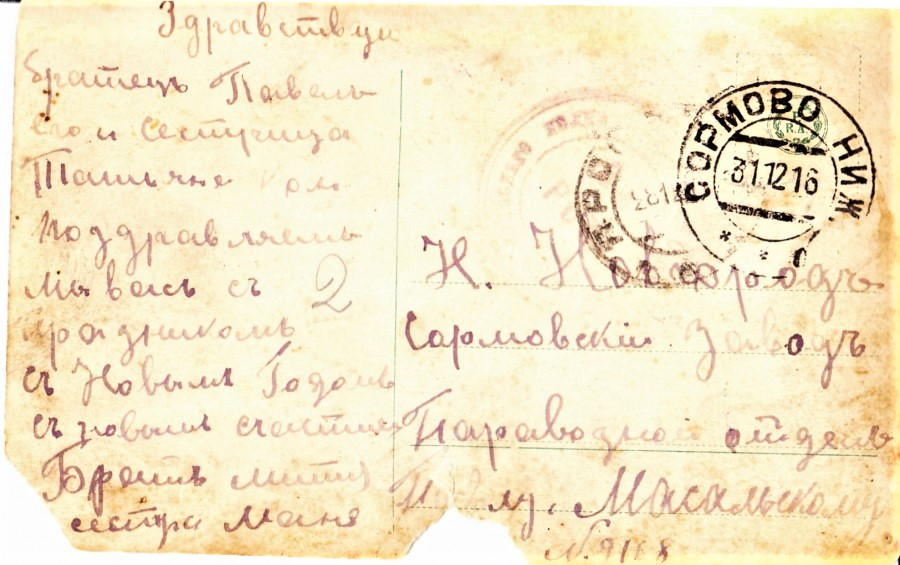 Здравствуй
братецъ Павелъ
и сестрица
Татьяна
поздравляемъ
мы васъ съ
праздникомъ
съ Новымъ Годомъ
съ новымъ счастием
Братъ Митя
сестра Маня
2
СОРМОВО НИЖ
31.12.16
Н. Новгородъ
Сармовскій Заводъ
Параводной отделъ
Масальскому
N. 9168